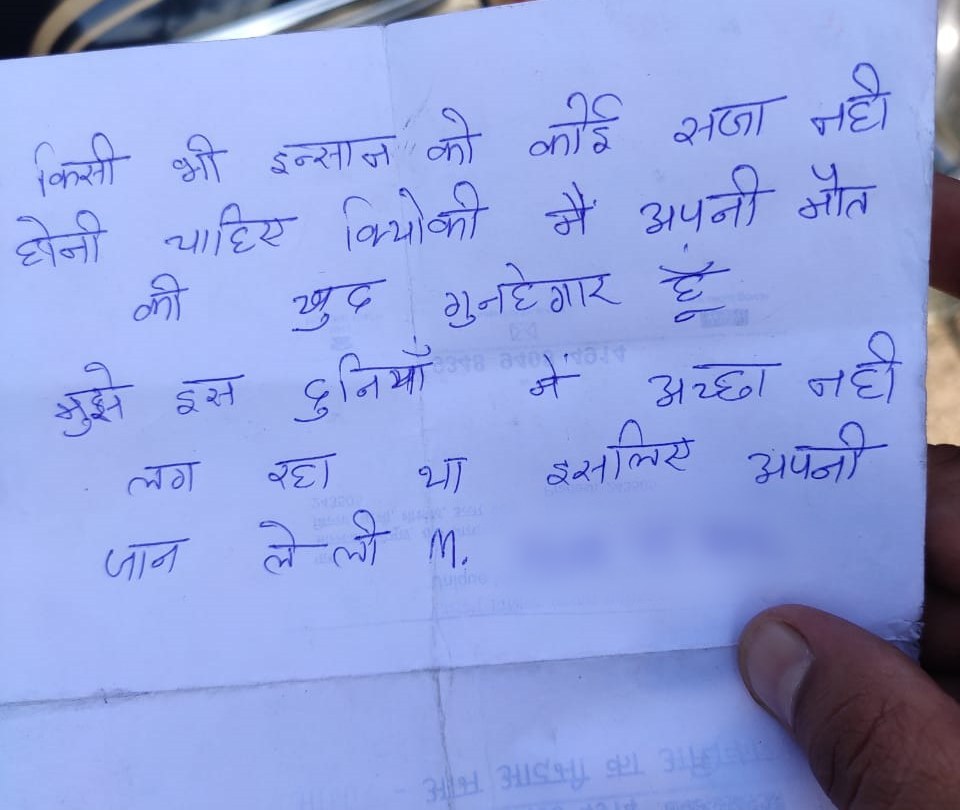 किसी भी इन्सान को कोई सजा नही
होनी चाहिए कियोकी मैं अपनी मौत
की खुद गुनहेगार हूँ
मुझे इस दुनियाँ में अच्छा नही
लग रहा था इसलिए अपनी
जान ले ली M.
9348 9403 4914